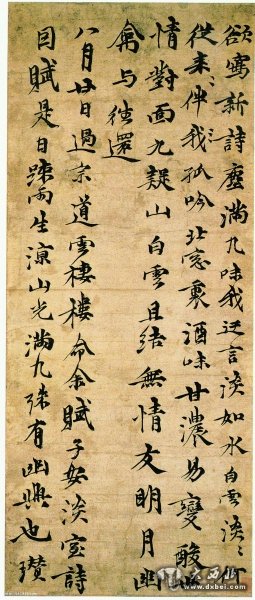 欲寫新詩塵滿几味我迂言淡如水白雲淡〻何
從來伴我孤吟北窓裏酒味甘濃易變酸世
情對面九疑山白雲且結無情友明月幽
禽与往還
八月廿日過宗道雲棲樓命余賦子安淡室詩
因賦是日踈雨生涼山光滿几殊有幽興也瓚
www.dxbei.com